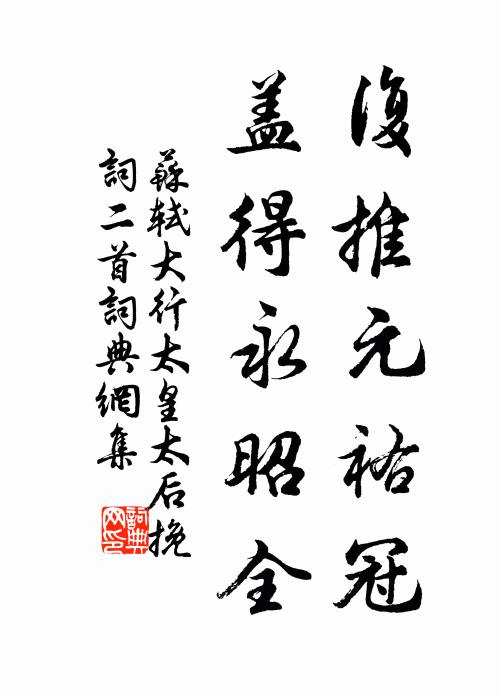 復推元祐冠
盖得永昭全
蘇軾大行太皇太后挽
詞二首詞典網集
詞典
网印